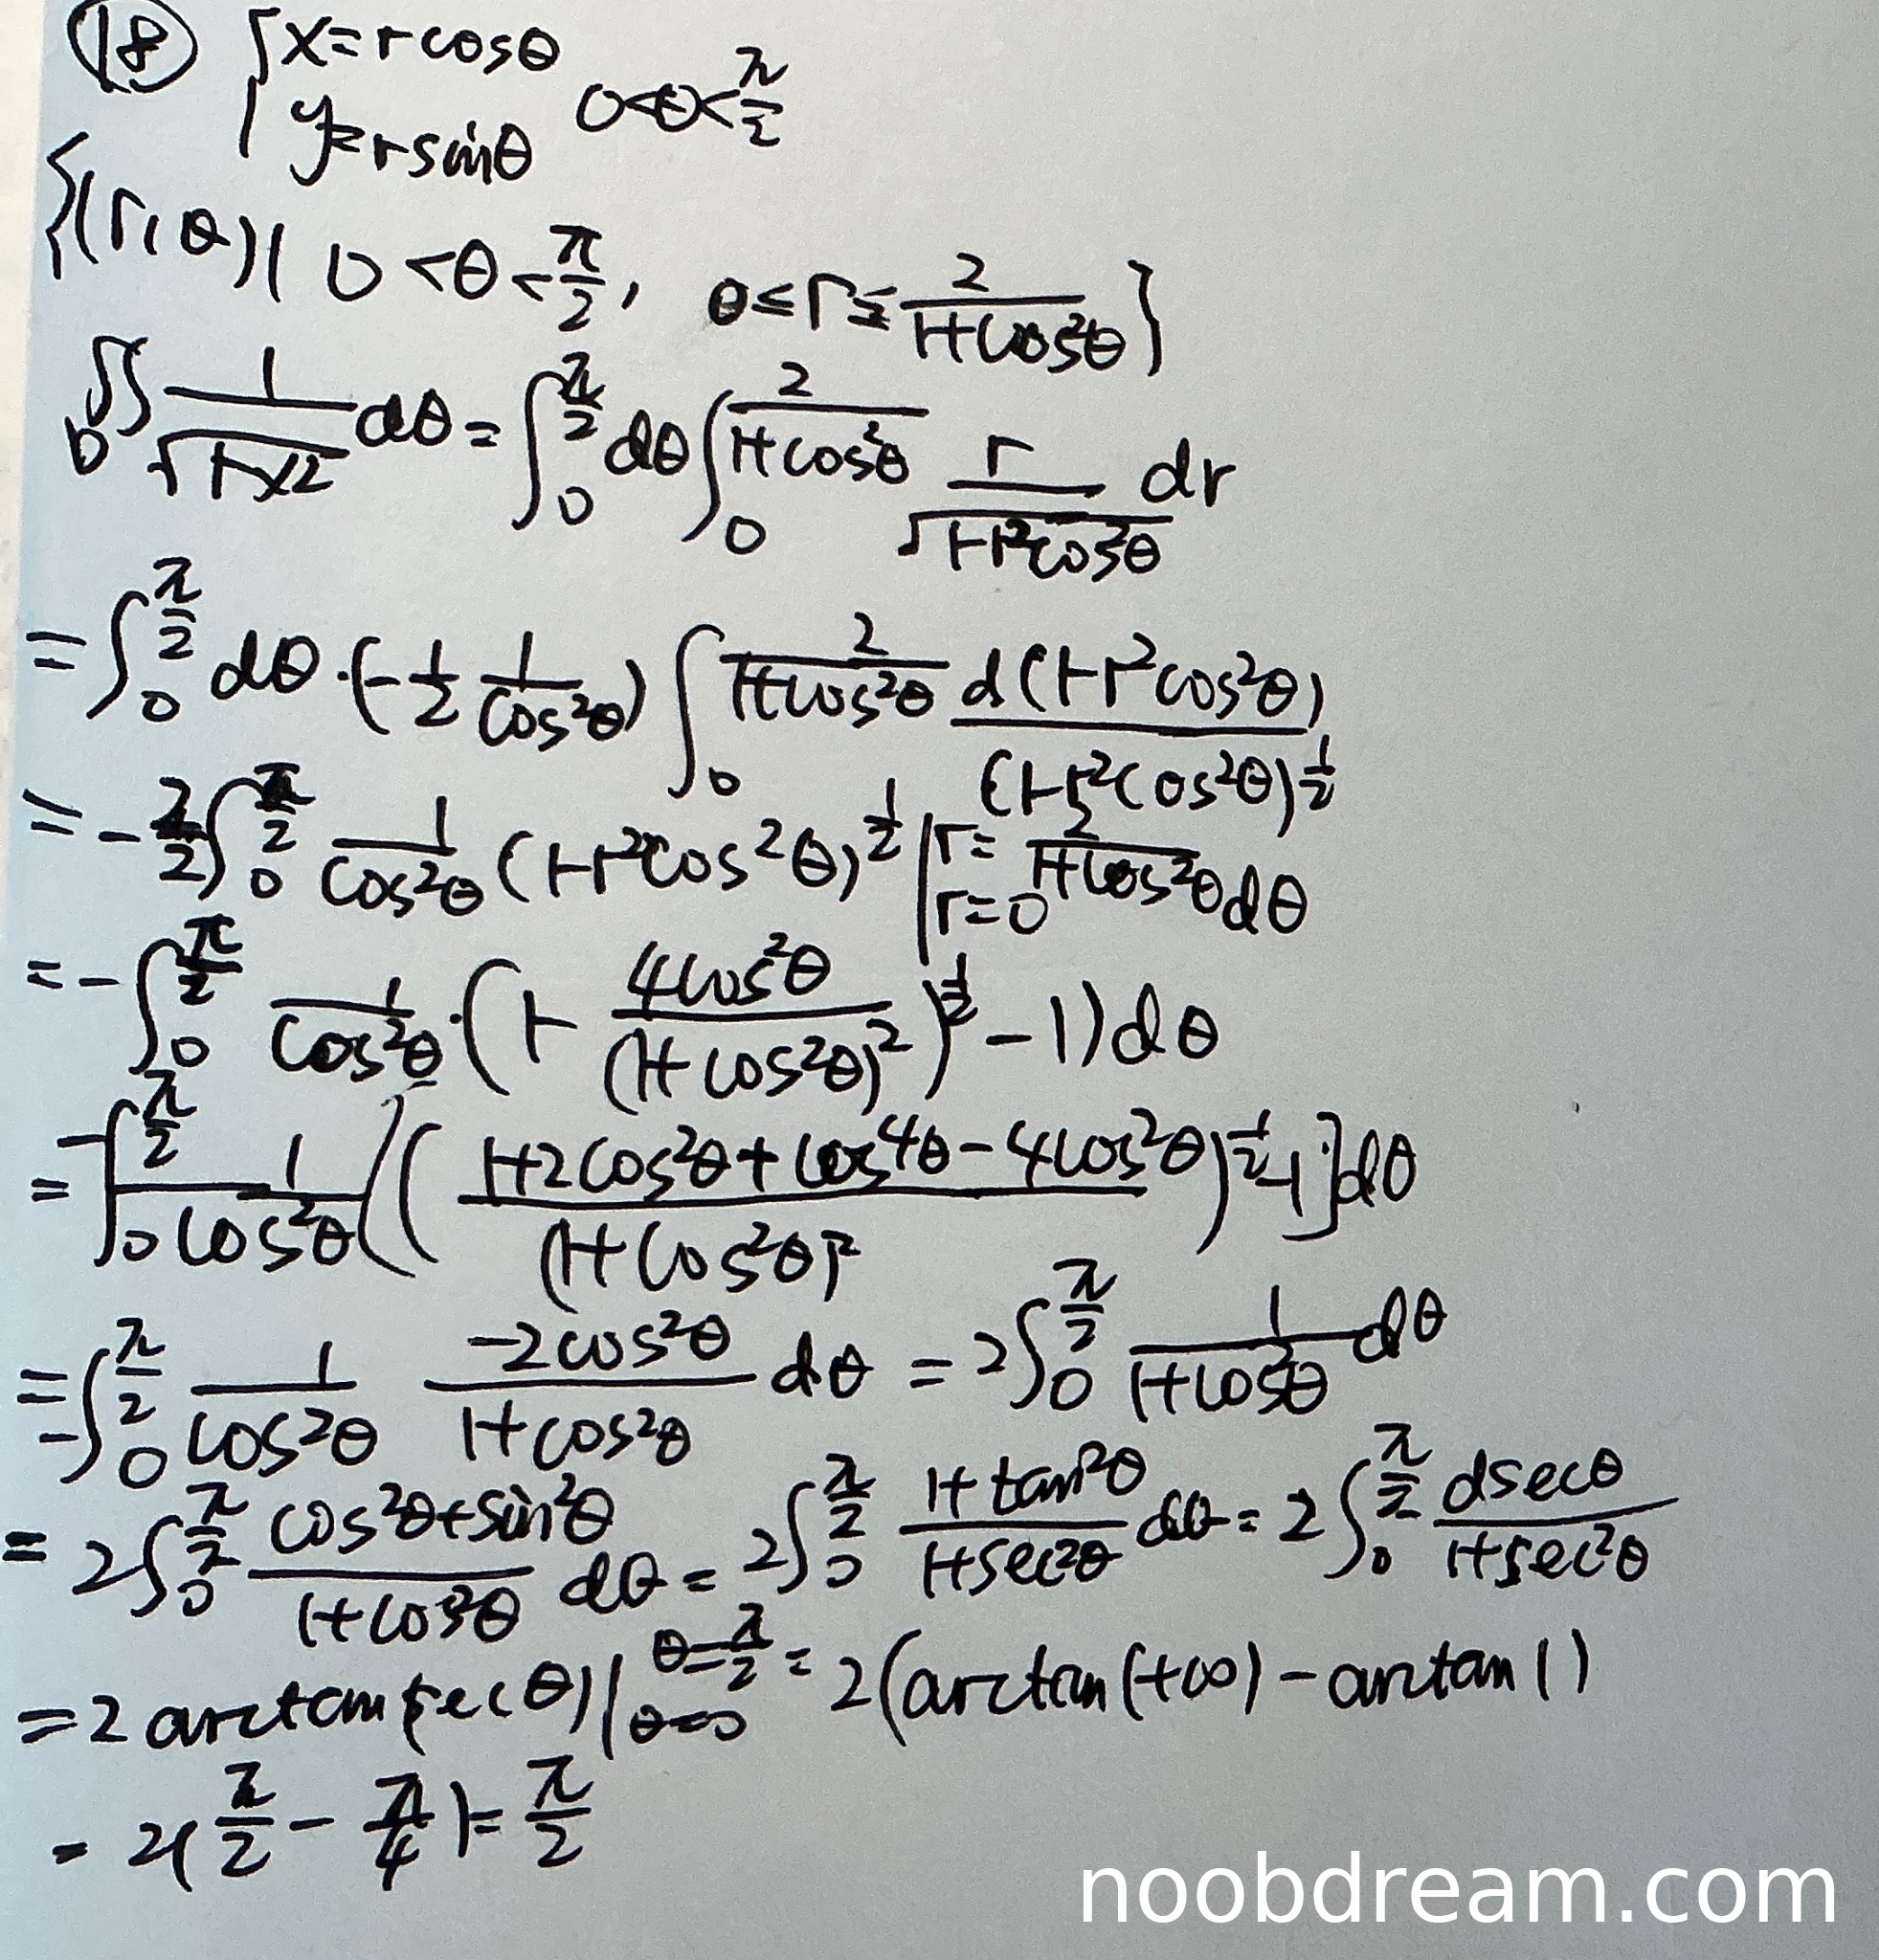 ⑱ { x=rcosθ
y=rsinθ 0<θ<π/2
{(r,θ)| 0<θ<π/2, 0≤r≤2/(1+cos²θ)}
∬_D 1/√(1-x²) dθ = ∫_0^{π/2} dθ ∫_0^{2/(1+cos²θ)} r/√(1-r²cos²θ) dr
= ∫_0^{π/2} dθ·(-1/2 1/cos²θ) ∫_0^{2/(1+cos²θ)} d(1-r²cos²θ)/(1-r²cos²θ)^{1/2}
= -2/2 ∫_0^{π/2} 1/cos²θ (1-r²cos²θ)^{1/2} |_{r=0}^{r=2/(1+cos²θ)} dθ
= -∫_0^{π/2} 1/cos²θ·(1-4cos²θ/(1+cos²θ)²)^{1/2} -1)dθ
= -∫_0^{π/2} 1/cos²θ ((1+2cos²θ+cos⁴θ-4cos²θ)/(1+cos²θ)²)^{1/2}-1]dθ
= -∫_0^{π/2} 1/cos²θ -2cos²θ/(1+cos²θ) dθ = 2∫_0^{π/2} 1/(1+cos²θ) dθ
= 2∫_0^{π/2} (cos²θ+sin²θ)/(1+cos²θ) dθ = 2∫_0^{π/2} (1+tan²θ)/(1+sec²θ) dθ = 2∫_0^{π/2} dsecθ/(1+sec²θ)
= 2arctan(secθ)|_{θ=0}^{θ=π/2} = 2(arctan(+∞)-arctan1)
= 2(π/2-π/4)=π/2
noobdream.com